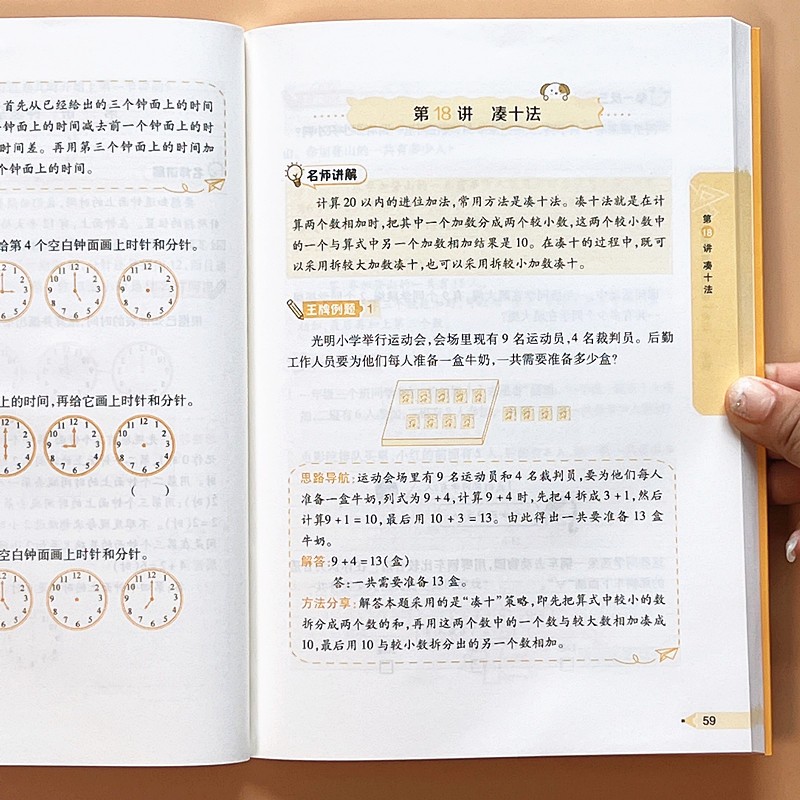 首先从已经给出的三个钟面上的时间
钟面上的时间减去前一个钟面上的时
时间差。再用第三个钟面上的时间加
个钟面上的时间。
给第4个空白钟面画上时针和分针。
上的时间,再给它画上时针和分针。
( )
空白钟面画上时针和分针。
第18讲 凑十法
名师讲解
计算20以内的进位加法,常用方法是凑十法。凑十法就是在计
算两个数相加时,把其中一个加数分成两个较小数,这两个较小数中
的一个与算式中另一个加数相加结果是10。在凑十的过程中,既可
以采用拆较大加数凑十,也可以采用拆较小加数凑十。
王牌例题1
光明小学举行运动会,会场里现有9名运动员,4名裁判员。后勤
工作人员要为他们每人准备一盒牛奶,一共需要准备多少盒?
思路导航:运动会场里有9名运动员和4名裁判员,要为他们每人
准备一盒牛奶,列式为9+4,计算9+4时,先把4拆成3+1,然后
计算9+1=10,最后用10+3=13。由此得出一共要准备13盒
牛奶。
解答:9+4=13(盒)
答:一共需要准备13盒。
方法分享:解答本题采用的是“凑十”策略,即先把算式中较小的数
拆分成两个数的和,再用这两个数中的一个数与较大数相加凑成
10,最后用10与较小数拆分出的另一个数相加。
第18讲 凑十法
59